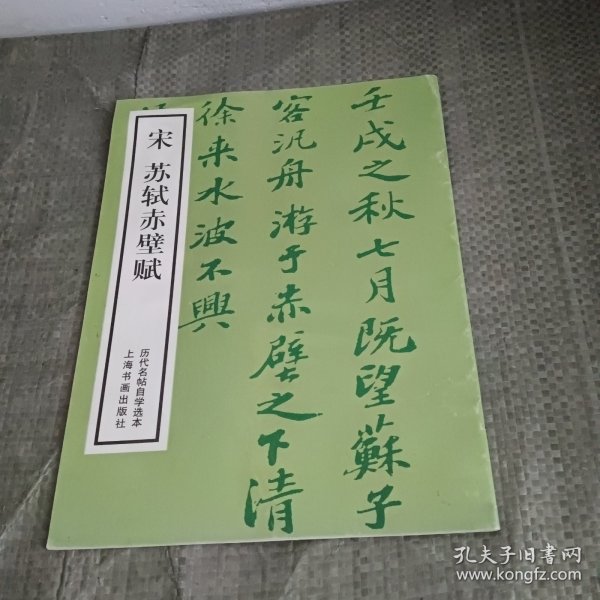 宋 苏轼赤壁赋
历代名帖自学选本
上海书画出版社
壬戌之秋七月既望蘇子
客汎舟游于赤壁之下清
徐来水波不興
孔夫子旧书网
www.kongfz.com